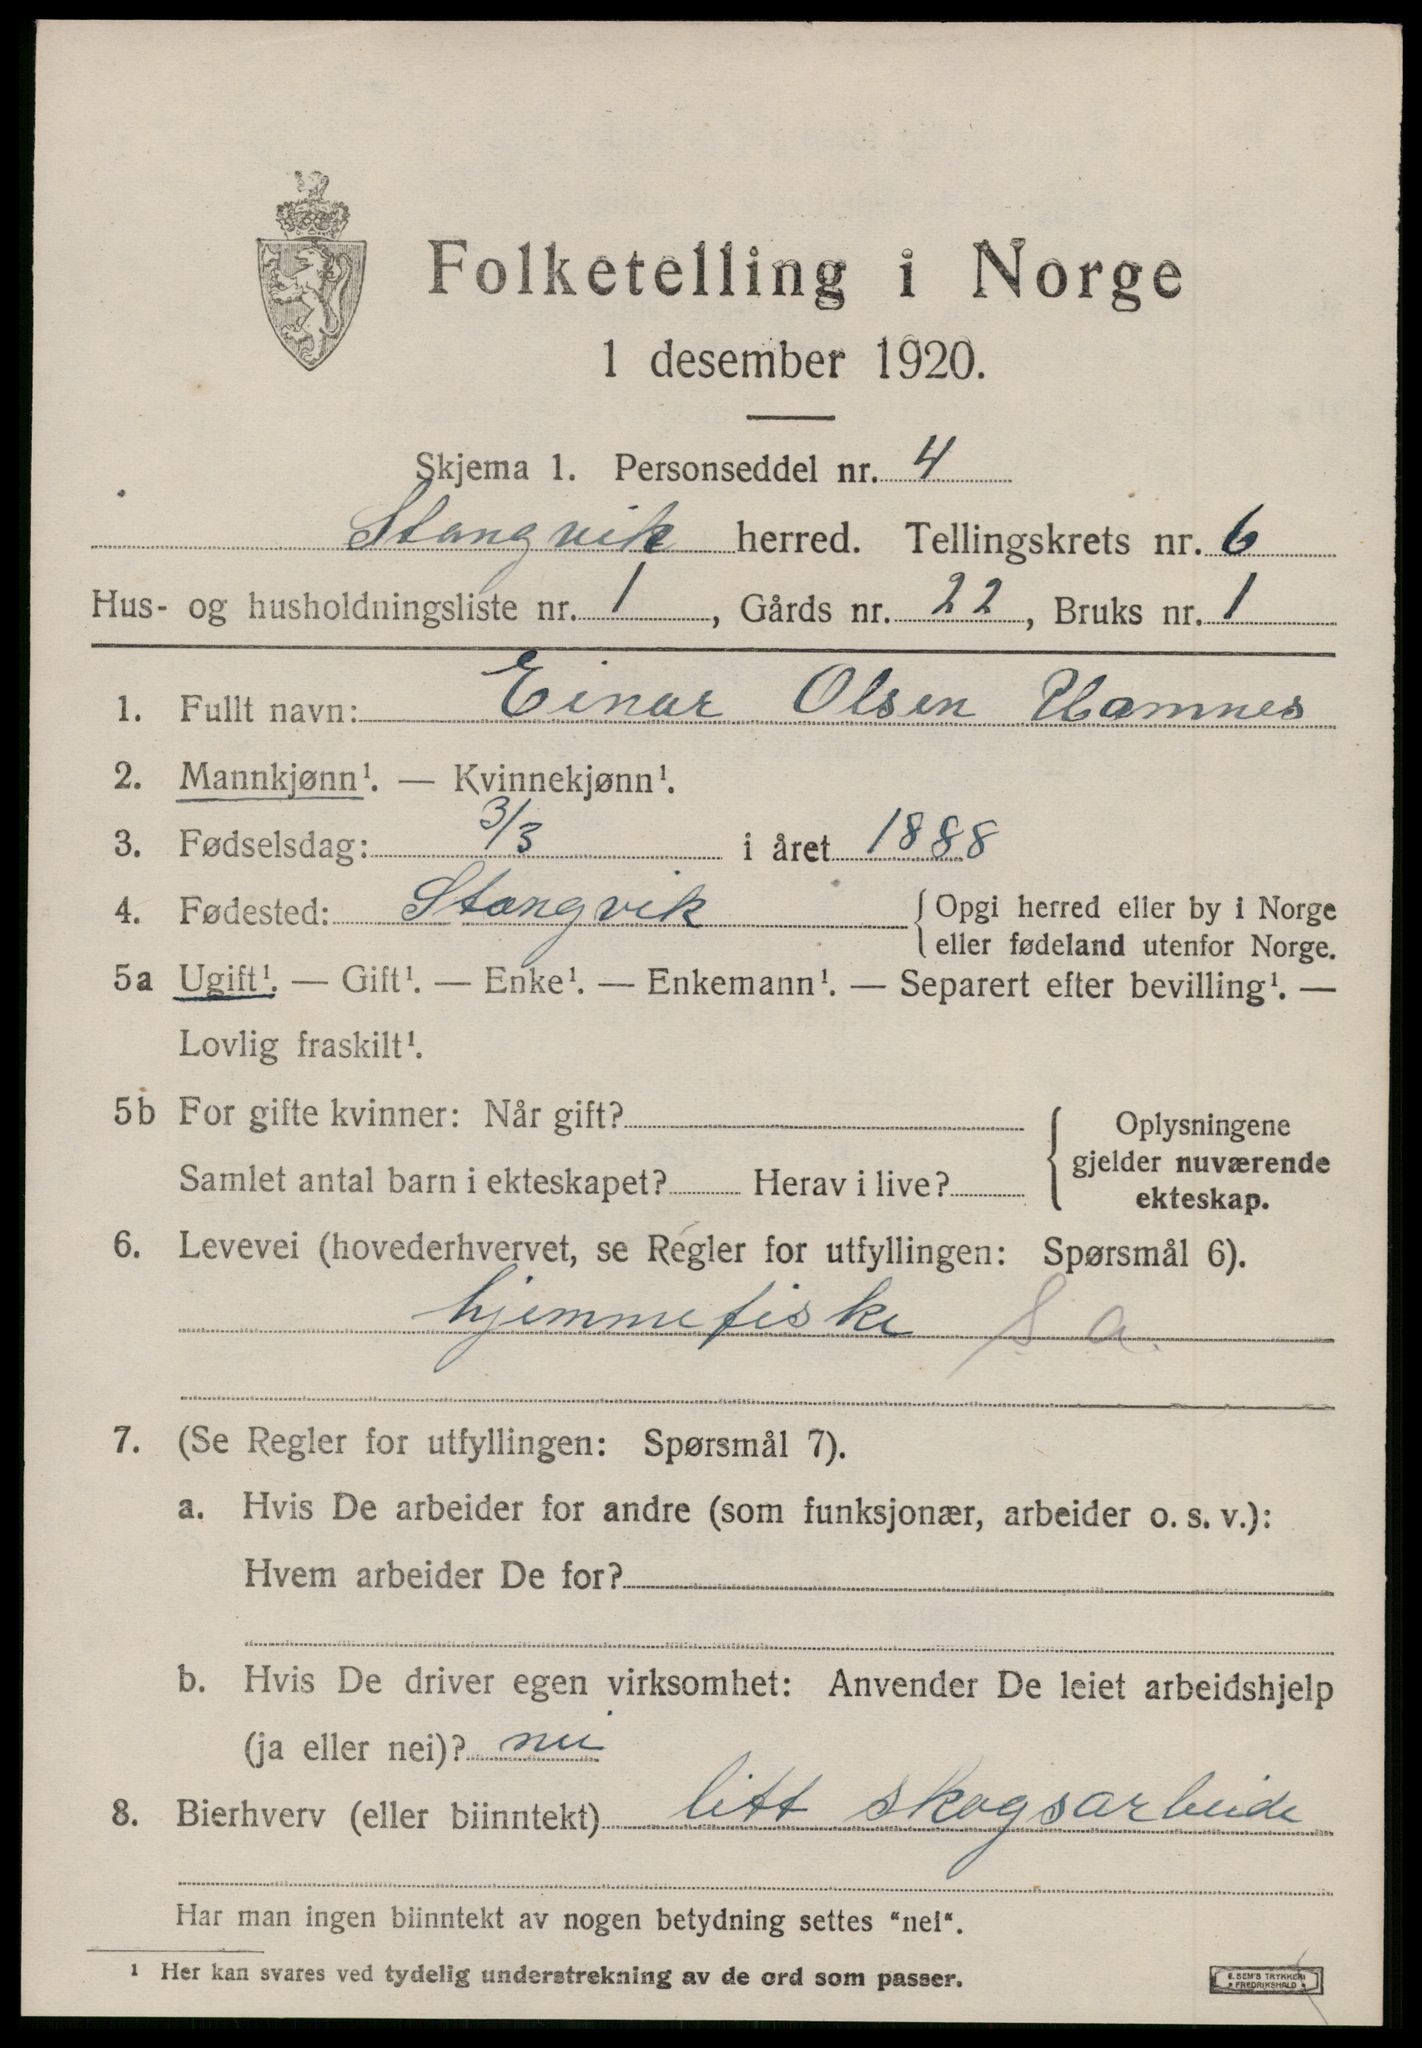 Folketelling i Norge
1 desember 1920.
Skjema 1. Personseddel nr. 4
Stangvik herred. Tellingskrets nr. 6
Hus- og husholdningsliste nr. 1, Gårds nr. 22, Bruks nr. 1
1. Fullt navn: Einar Olsen Hamnes
2. Mannkjønn¹. — Kvinnekjønn¹.
3. Fødselsdag: 3/3 i året 1888
4. Fødested: Stangvik { Opgi herred eller by i Norge
eller fødeland utenfor Norge.
5a Ugift¹. — Gift¹. — Enke¹. — Enkemann¹. — Separert efter bevilling¹. —
Lovlig fraskilt¹.
5b For gifte kvinner: Når gift?
Samlet antal barn i ekteskapet? Herav i live?
{ Oplysningene
gjelder nuværende
ekteskap.
6. Levevei (hovederhvervet, se Regler for utfyllingen: Spørsmål 6).
hjemmefiske S a.
7. (Se Regler for utfyllingen: Spørsmål 7).
a. Hvis De arbeider for andre (som funksjonær, arbeider o. s. v.):
Hvem arbeider De for?
b. Hvis De driver egen virksomhet: Anvender De leiet arbeidshjelp
(ja eller nei)? nei
8. Bierhverv (eller biinntekt) litt skogsarbeide
Har man ingen biinntekt av nogen betydning settes "nei".
¹ Her kan svares ved tydelig understrekning av de ord som passer.
E. SEM'S TRYKKERI
FREDRIKSHALD